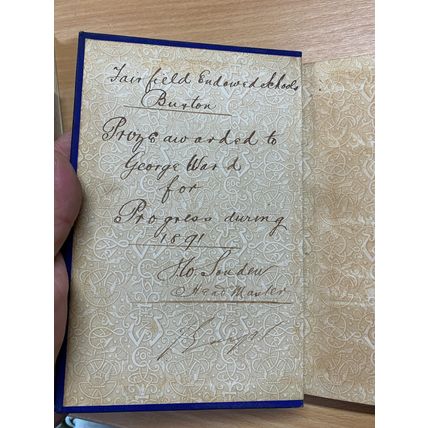 Fairfield Endowed Schools
Buxton
Prize awarded to
George Ward
for
Progress during
1891
Head Master